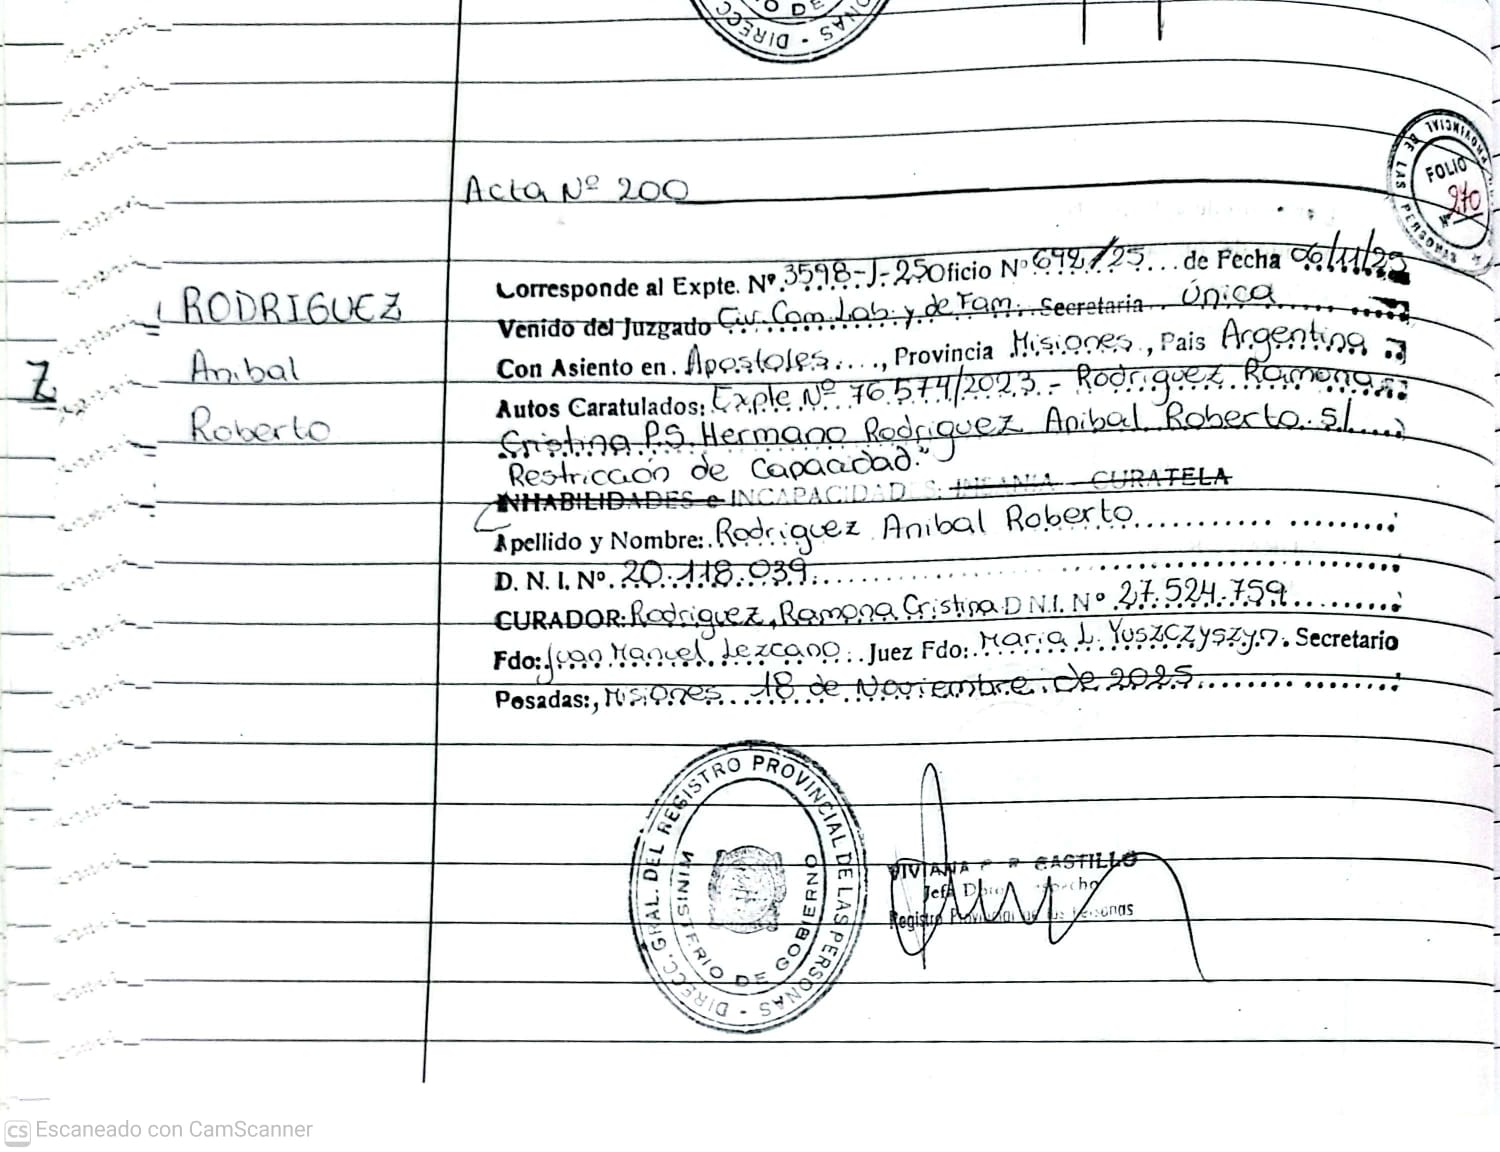 DE
DIRECC. - NAS
PROVINCIAL DE LAS PERSONAS
FOLIO
Nº 270
Acta Nº 200
Corresponde al Expte. Nº 3598-J-25 Oficio Nº 692/25 de Fecha 06/11/25
Venido del Juzgado Civ. Com. Lab. y de Fam. Secretaria Única
Con Asiento en Apostoles, Provincia Misiones, Pais Argentina
Autos Caratulados: Expte Nº 76.574/2023.- Rodriguez Ramona
Cristina P.S. Hermano Rodriguez Anibal Roberto s/
Restricción de Capacidad."
INHABILIDADES e INCAPACIDADES: INSANIA - CURATELA
Apellido y Nombre: Rodriguez Anibal Roberto
D. N. I. Nº. 20.118.039.
CURADOR: Rodriguez, Ramona Cristina D.N.I. Nº 27.524.759
Fdo: Juan Manuel Lezcano. Juez Fdo: Maria L. Yuszczyszyn. Secretario
Posadas:, Misiones 18 de Noviembre de 2025
RODRIGUEZ
Anibal
Roberto
Z
DIRECC. GRAL. DEL REGISTRO PROVINCIAL DE LAS PERSONAS -
MINISTERIO DE GOBIERNO
VIVIANA CASTILLO
Jefa
Registro Provincial de las Personas
CS Escaneado con CamScanner